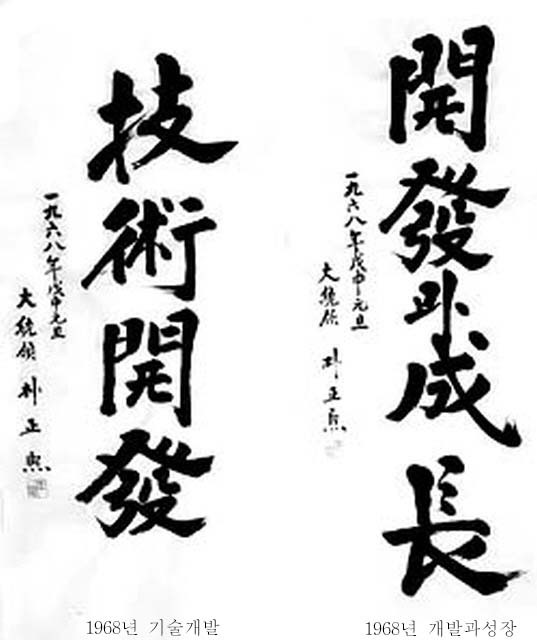 開發과成長
一九六八年戊申元旦
大統領 朴正熙
技術開發
一九六八年戊申元旦
大統領 朴正熙
1968년 기술개발
1968년 개발과성장